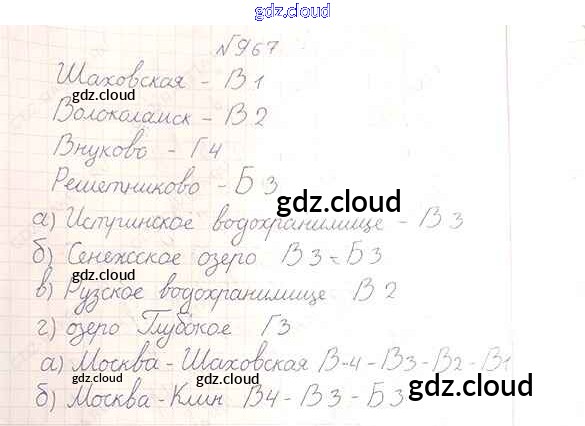 gdz.cloud
№967
Шаховская - В 1
gdz.cloud gdz.cloud
Волоколамск - В 2
Внуково - Г 4
Решетниково - Б 3
gdz.cloud
а) Истринское водохранилище - В 3
б) Сенежское озеро В 3 - Б 3
gdz.cloud gdz.cloud
в) Рузское водохранилище В 2
г) озеро Глубокое Г 3
а) Москва - Шаховская В-4 - В 3 - В 2 - В 1
gdz.cloud gdz.cloud
б) Москва - Клин В 4 - В 3 - Б 3